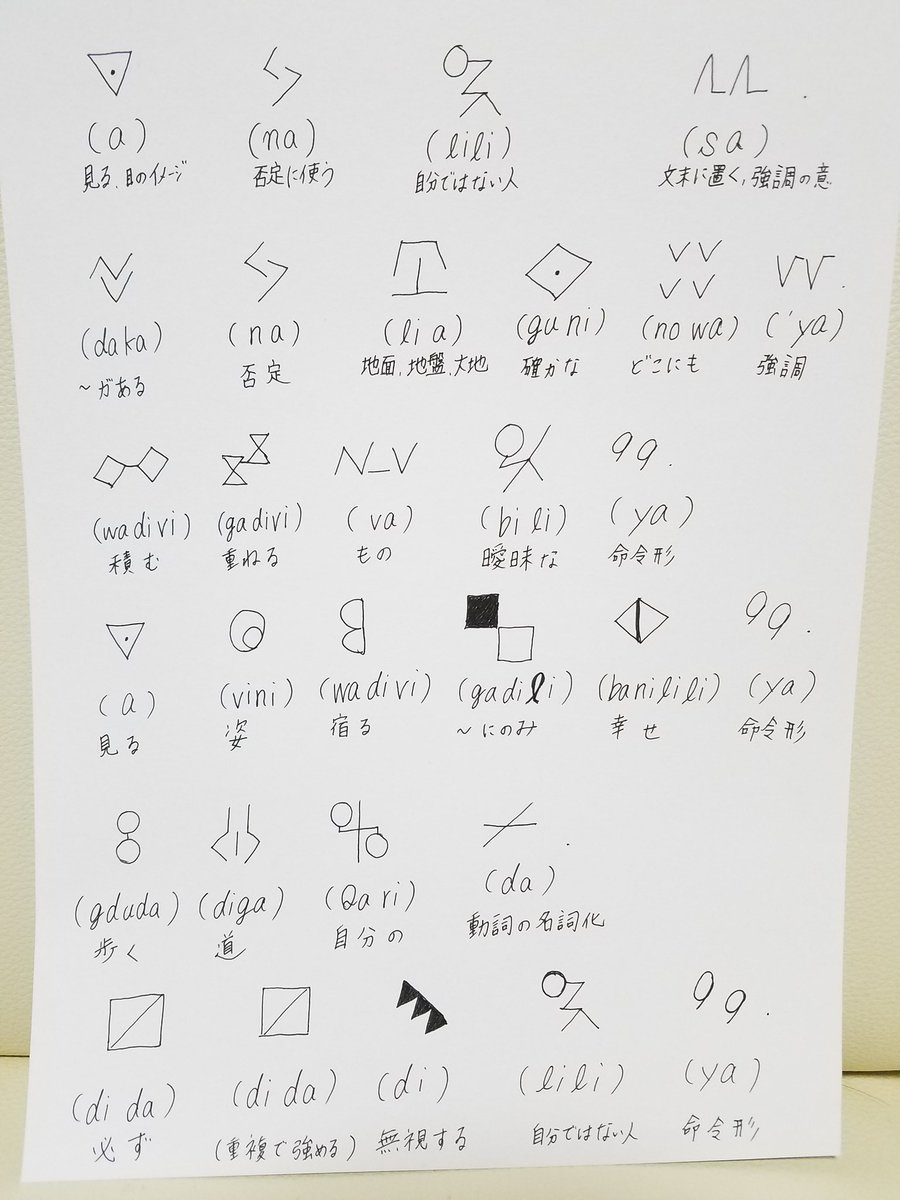 (a) (na) (lili) (sa)
見る、目のイメージ 否定に使う 自分ではない人 文末に置く,強調の意
(daka) (na) (lia) (guni) (nowa) ('ya)
~がある 否定 地面,地盤,大地 確かな どこにも 強調
(wadivi) (gadivi) (va) (bili) (ya)
積む 重ねる もの 曖昧な 命令形
(a) (vini) (wadivi) (gadili) (banilili) (ya)
見る 姿 宿る ~にのみ 幸せ 命令形
(gduda) (diga) (Qari) (da)
歩く 道 自分の 動詞の名詞化
(dida) (dida) (di) (lili) (ya)
必ず (重複で強める) 無視する 自分ではない人 命令形